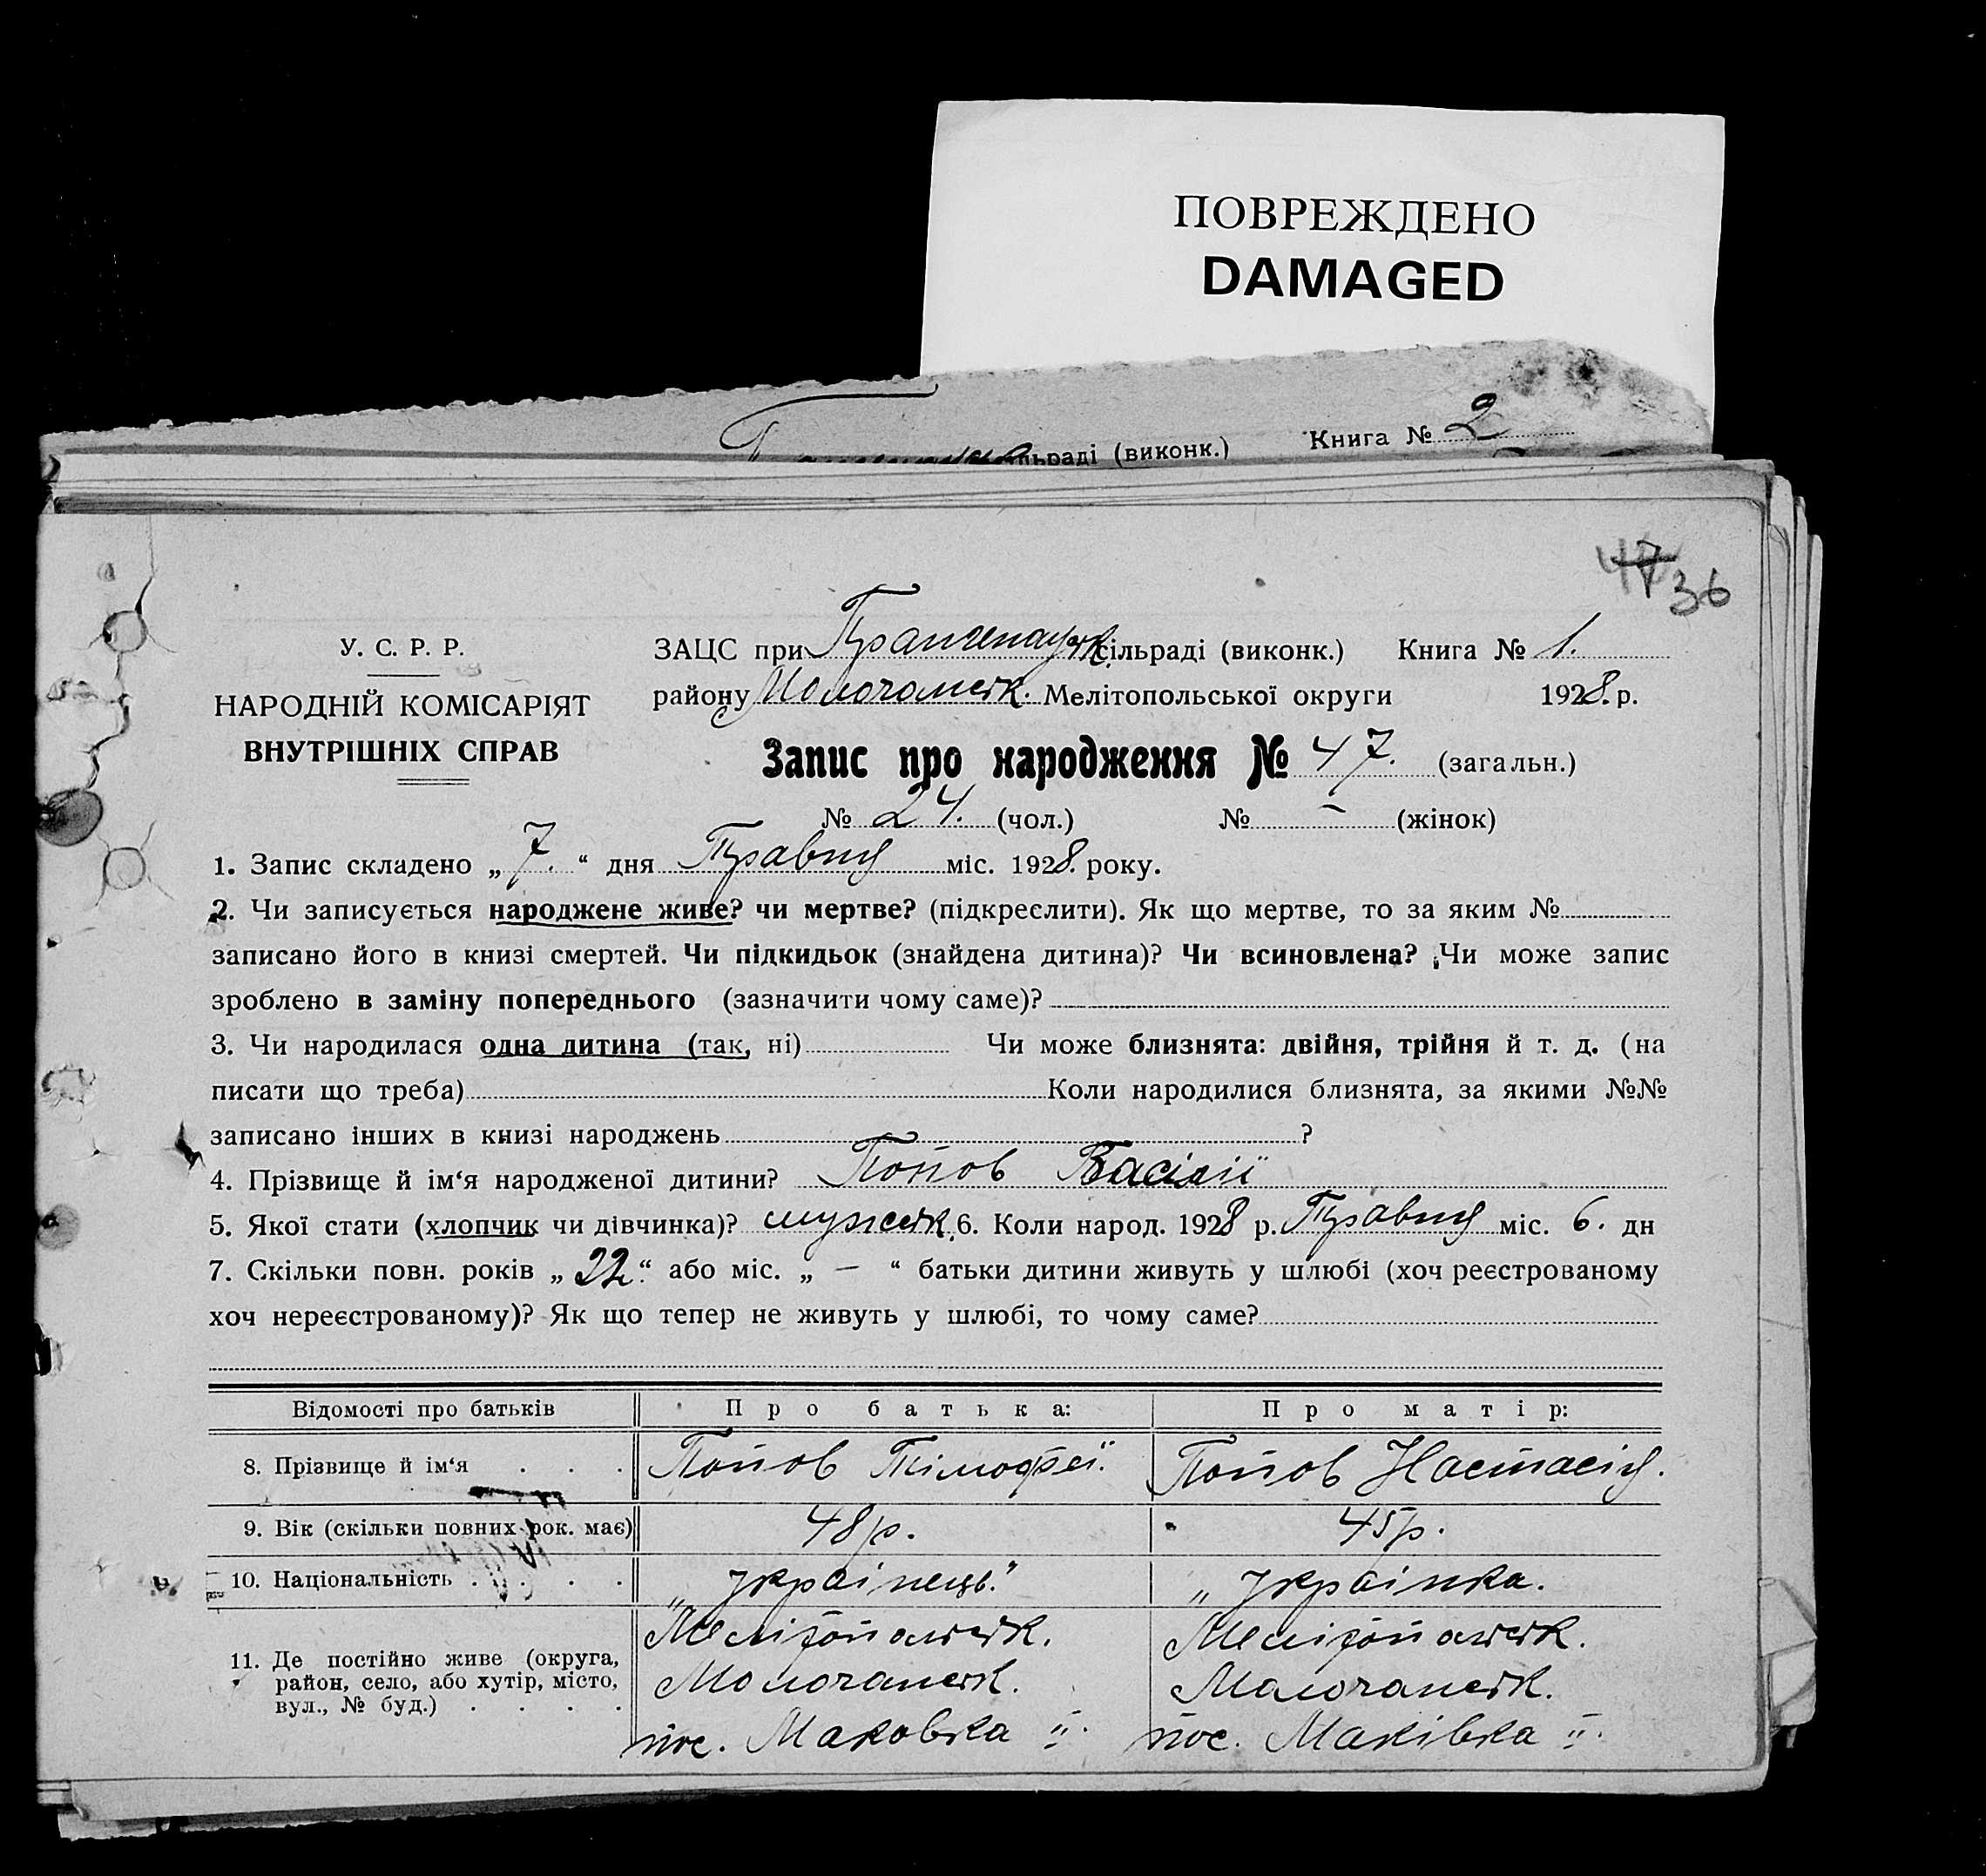 ПОВРЕЖДЕНО
DAMAGED
сільраді (виконк.) Книга № 2
47 36
У. С. Р. Р.
НАРОДНІЙ КОМІСАРІЯТ
ВНУТРІШНІХ СПРАВ
ЗАЦС при сільраді (виконк.) Книга № 1.
району Молочанськ. Мелітопольської округи 1928. р.
Запис про народження № 47. (загальн.)
№ 24. (чол.) № — (жінок)
1. Запис складено „ 7. “ дня Травня міс. 1928. року.
2. Чи записується народжене живе? чи мертве? (підкреслити). Як що мертве, то за яким №
записано його в книзі смертей. Чи підкидьок (знайдена дитина)? Чи всиновлена? Чи може запис
зроблено в заміну попереднього (зазначити чому саме)?
3. Чи народилася одна дитина (так, ні) Чи може близнята: двійня, трійня й т. д. (на
писати що треба) Коли народилися близнята, за якими №№
записано інших в книзі народжень ?
4. Прізвище й ім‘я народженої дитини? Попов Васілії
5. Якої стати (хлопчик чи дівчинка)? мужськ. 6. Коли народ. 1928 р. Травня міс. 6. дн
7. Скільки повн. років „ 22 “ або міс. „ — “ батьки дитини живуть у шлюбі (хоч реєстрованому
хоч нереєстрованому)? Як що тепер не живуть у шлюбі, то чому саме?
Відомості про батьків Про батька: Про матір:
8. Прізвище й ім‘я . . . Попов Тімофеї. Попов Настасія.
9. Вік (скільки повних рок. має) 48 р. 45 р.
10. Національність . . . . „ Українець." „ Українка.
11. Де постійно живе (округа, район, село, або хутір, місто, вул., № буд.) . . . .
Мелітопольськ. Мелітопольськ.
Молочанськ. Молочанськ.
пос. Маковка II. пос. Маківка II.